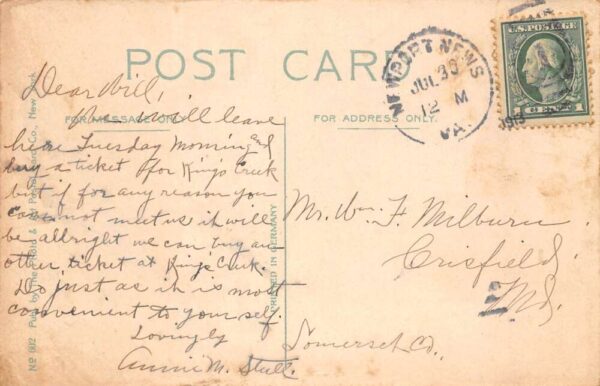 POST CARD
FOR MESSAGE ONLY.
FOR ADDRESS ONLY.
Dear Will,
We will leave
here Tuesday Morning and
buy a ticket for King's Creek
but if for any reason you
can not meet us it will
be allright we can buy an-
other ticket at King's Creek.
Do just as it is most
convenient to your self.
Lovingly
Annie M. Stull.
Mr. Wm. F. Milburn
Crisfield,
Md.
Somerset Co.
NEWPORT NEWS
JUL 30
12 M
VA.
U.S. POSTAGE
1 CENT 1
PRINTED IN GERMANY
No 1912 Pub. by The Photo & Art Postal Card Co., New York.